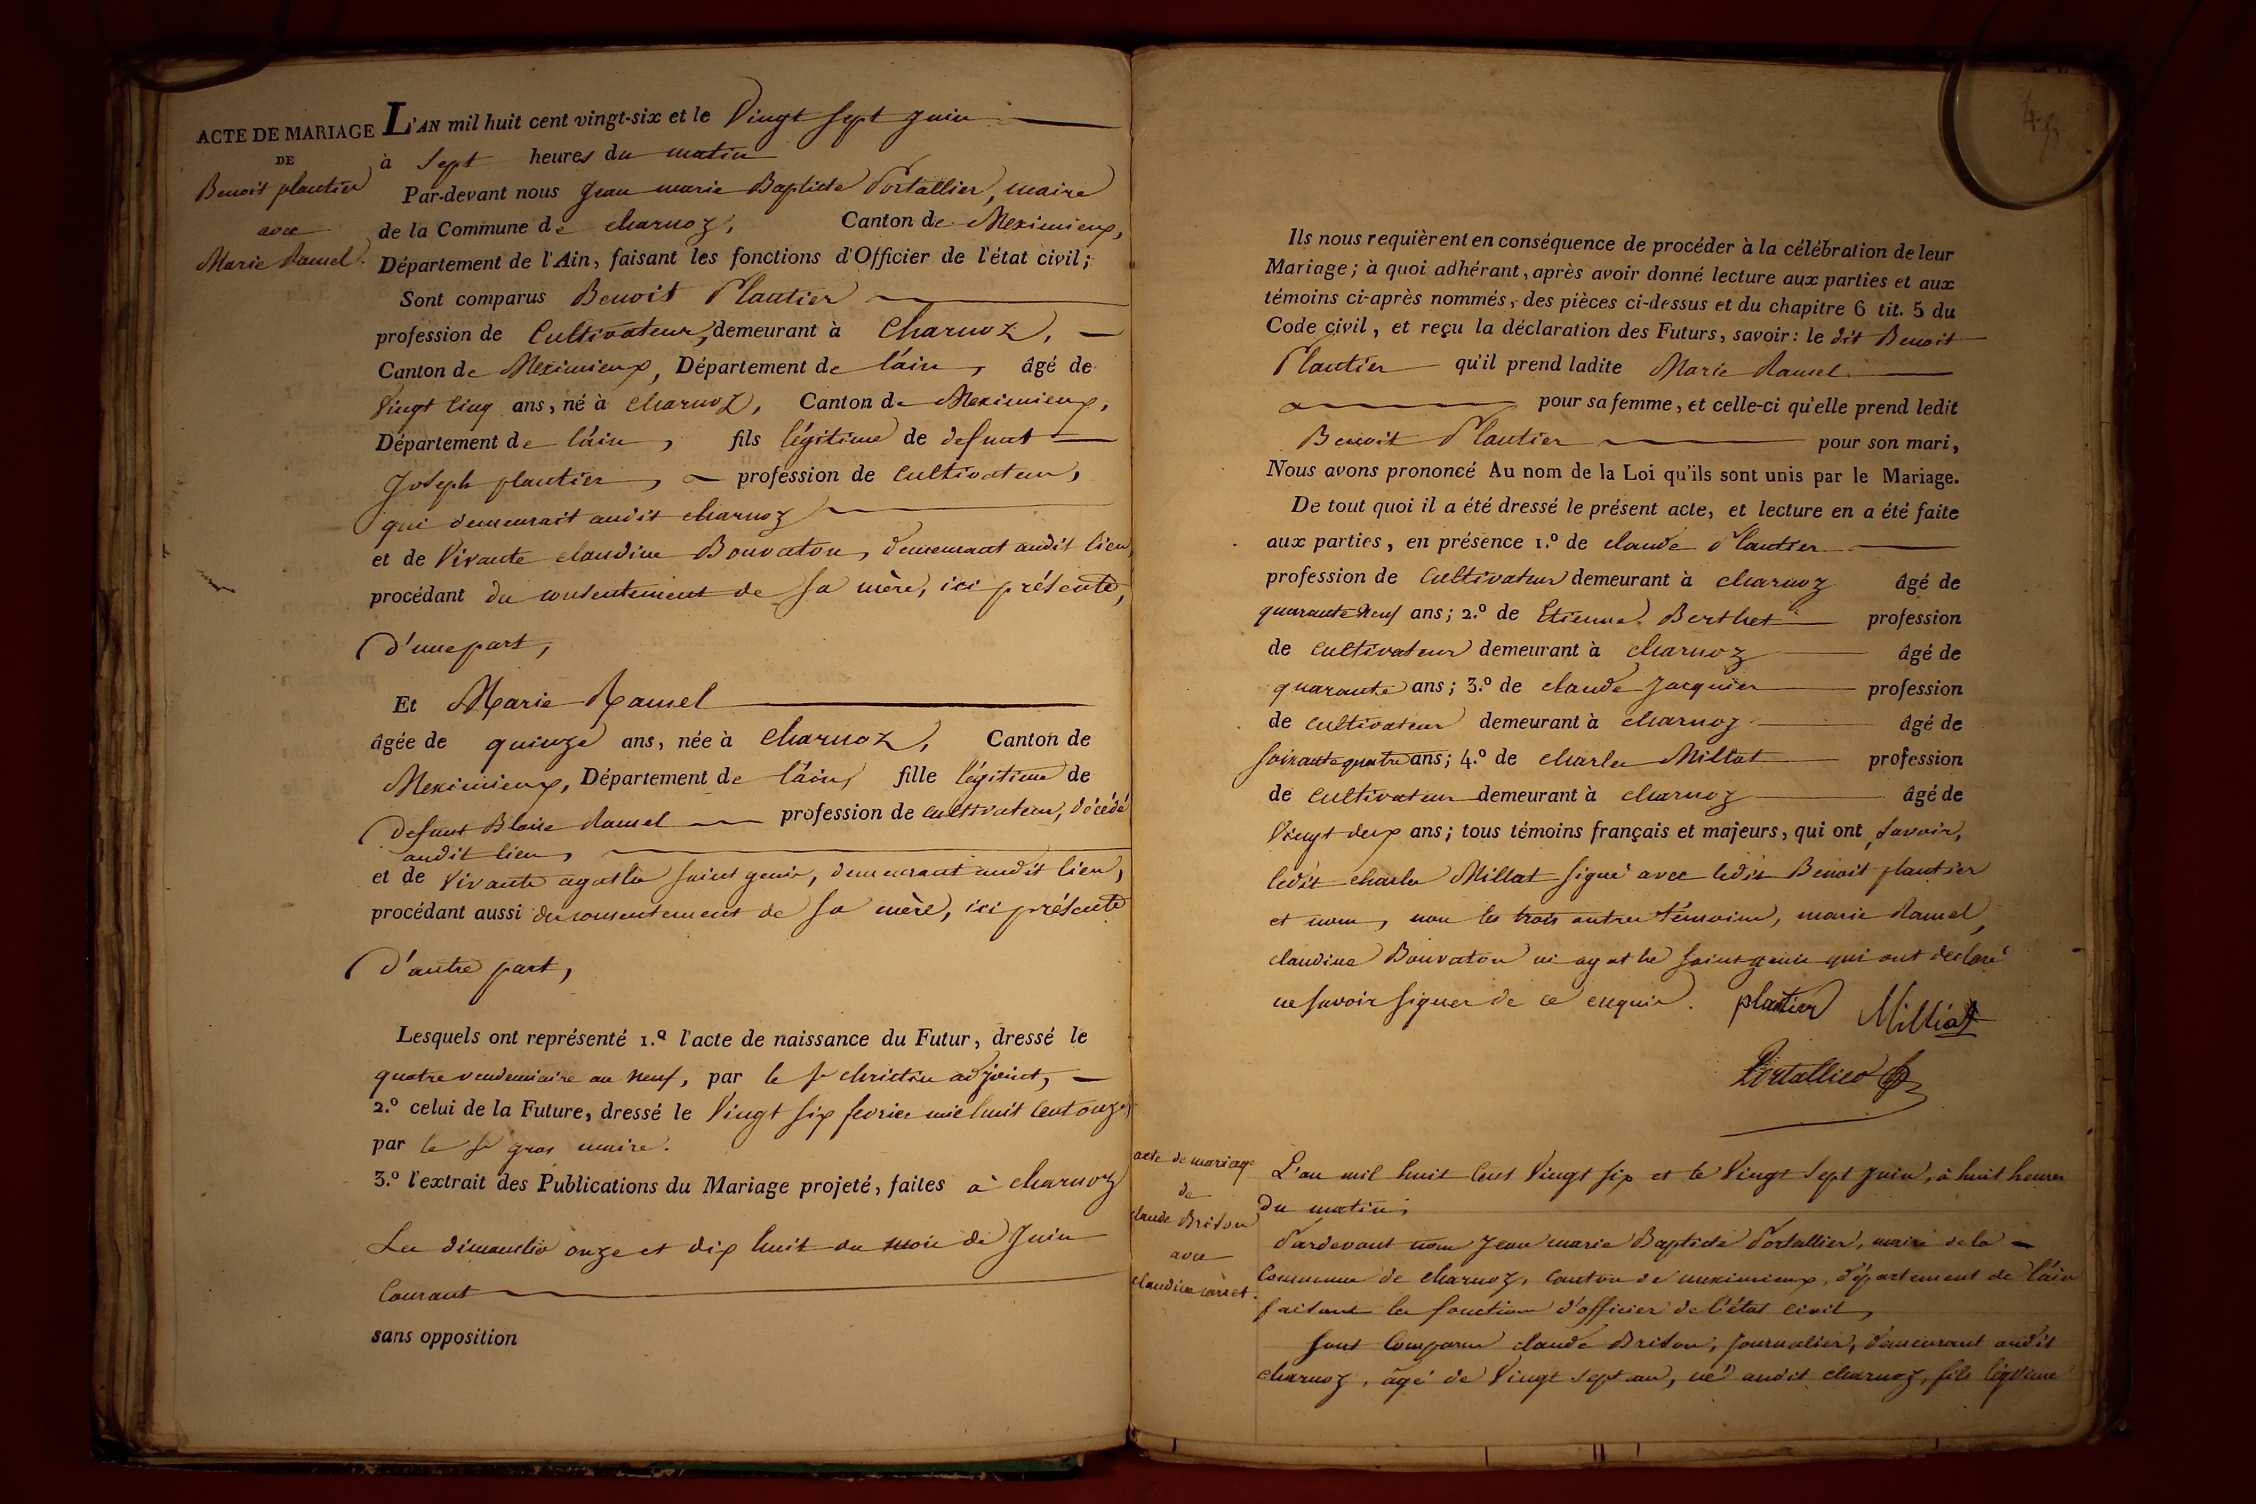 ACTE DE MARIAGE
DE
Benoit plantier
avec
Marie Ramel.
L'AN mil huit cent vingt-six et le Vingt sept juin
à Sept heures du matin
Par-devant nous Jean marie Baptiste Portallier, maire
de la Commune de charnoz, Canton de Meximieux,
Département de l'Ain, faisant les fonctions d'Officier de l'état civil;
Sont comparus Benoit Plantier
profession de Cultivateur, demeurant à Charnoz,
Canton de Meximieux, Département de l'ain, âgé de
Vingt cinq ans, né à charnoz, Canton de Meximieux,
Département de l'ain, fils légitime de defunt
Joseph plantier, profession de cultivateur,
qui demeurait audit charnoz
et de Vivante claudine Bouvaton, demeurant audit lieu,
procédant du consentement de sa mère, ici présente,
D'une part,
Et Marie Ramel
âgée de quinze ans, née à Charnoz, Canton de
Meximieux, Département de l'ain, fille légitime de
defunt Blaise Ramel profession de cultivateur, décédé
audit lieu,
et de Vivante agathe saint genis, demeurant audit lieu,
procédant aussi du consentement de sa mère, ici présente
D'autre part,
Lesquels ont représenté 1.º l'acte de naissance du Futur, dressé le
quatre vendemiaire an neuf, par le sr christin adjoint,
2.º celui de la Future, dressé le Vingt six fevrier mil huit cent onze,
par le sr gros maire.
3.º l'extrait des Publications du Mariage projeté, faites à charnoz
Les dimanches onze et dix huit du mois de Juin
Courant
sans opposition
Ils nous requièrent en conséquence de procéder à la célébration de leur
Mariage; à quoi adhérant, après avoir donné lecture aux parties et aux
témoins ci-après nommés, des pièces ci-dessus et du chapitre 6 tit. 5 du
Code civil, et reçu la déclaration des Futurs, savoir: le dit Benoit
Plantier qu'il prend ladite Marie Ramel
pour sa femme, et celle-ci qu'elle prend ledit
Benoit Plantier pour son mari,
Nous avons prononcé Au nom de la Loi qu'ils sont unis par le Mariage.
De tout quoi il a été dressé le présent acte, et lecture en a été faite
aux parties, en présence 1.º de claude Plantier
profession de cultivateur demeurant à charnoz âgé de
quarante neuf ans; 2.º de Etienne Berthet profession
de cultivateur demeurant à charnoz âgé de
quarante ans; 3.º de claude Jacquier profession
de cultivateur demeurant à charnoz âgé de
soixante quatre ans; 4.º de charles Millat profession
de cultivateur demeurant à charnoz âgé de
Vingt deux ans; tous témoins français et majeurs, qui ont, savoir,
ledit charles Millat signé avec ledit Benoit plantier
et nous, non les trois autres témoins, marie Ramel,
claudine Bouvaton ni agathe saint genis qui ont declaré
ne savoir signer de ce enquis. plantier Milliat
Portallier
acte de mariage
de
claude Briton
avec
L'an mil huit cent Vingt six et le Vingt sept juin, à huit heures
du matin;
Pardevant nous Jean marie Baptiste Portallier, maire de la
Commune de charnoz, canton de meximieux, département de l'ain
faisant les fonctions d'officier de l'état civil,
Sont Comparus claude Briton, journalier, demeurant audit
charnoz, âgé de Vingt sept ans, né audit charnoz, fils légitime